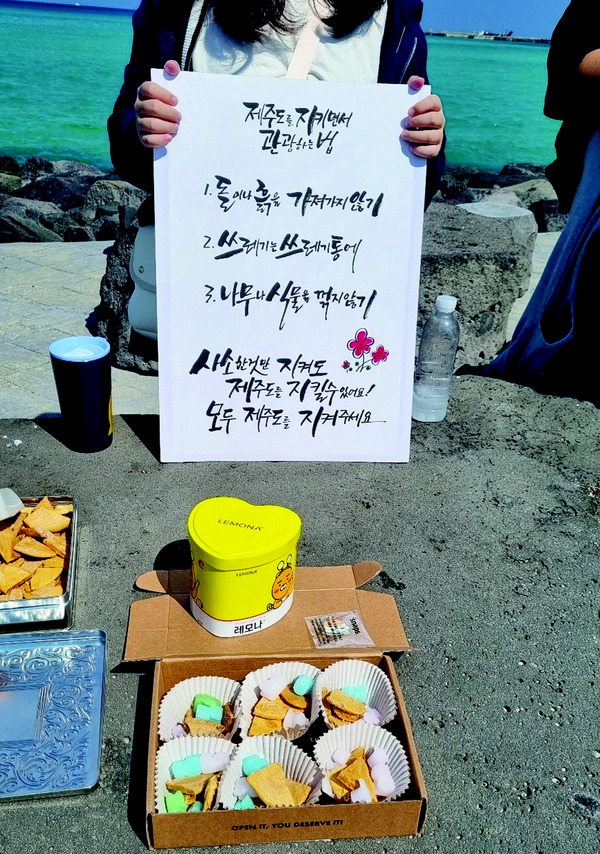 제주도를 지키면서
관광하는 법
1. 돌이나 흙을 가져가지 않기
2. 쓰레기는 쓰레기통에
3. 나무나 식물을 꺾지 않기
사소한것만 지켜도
제주도를 지킬수있어요!
모두 제주도를 지켜주세요
LEMONA
LEMONA
레모나
OPEN IT, YOU DESERVE IT!